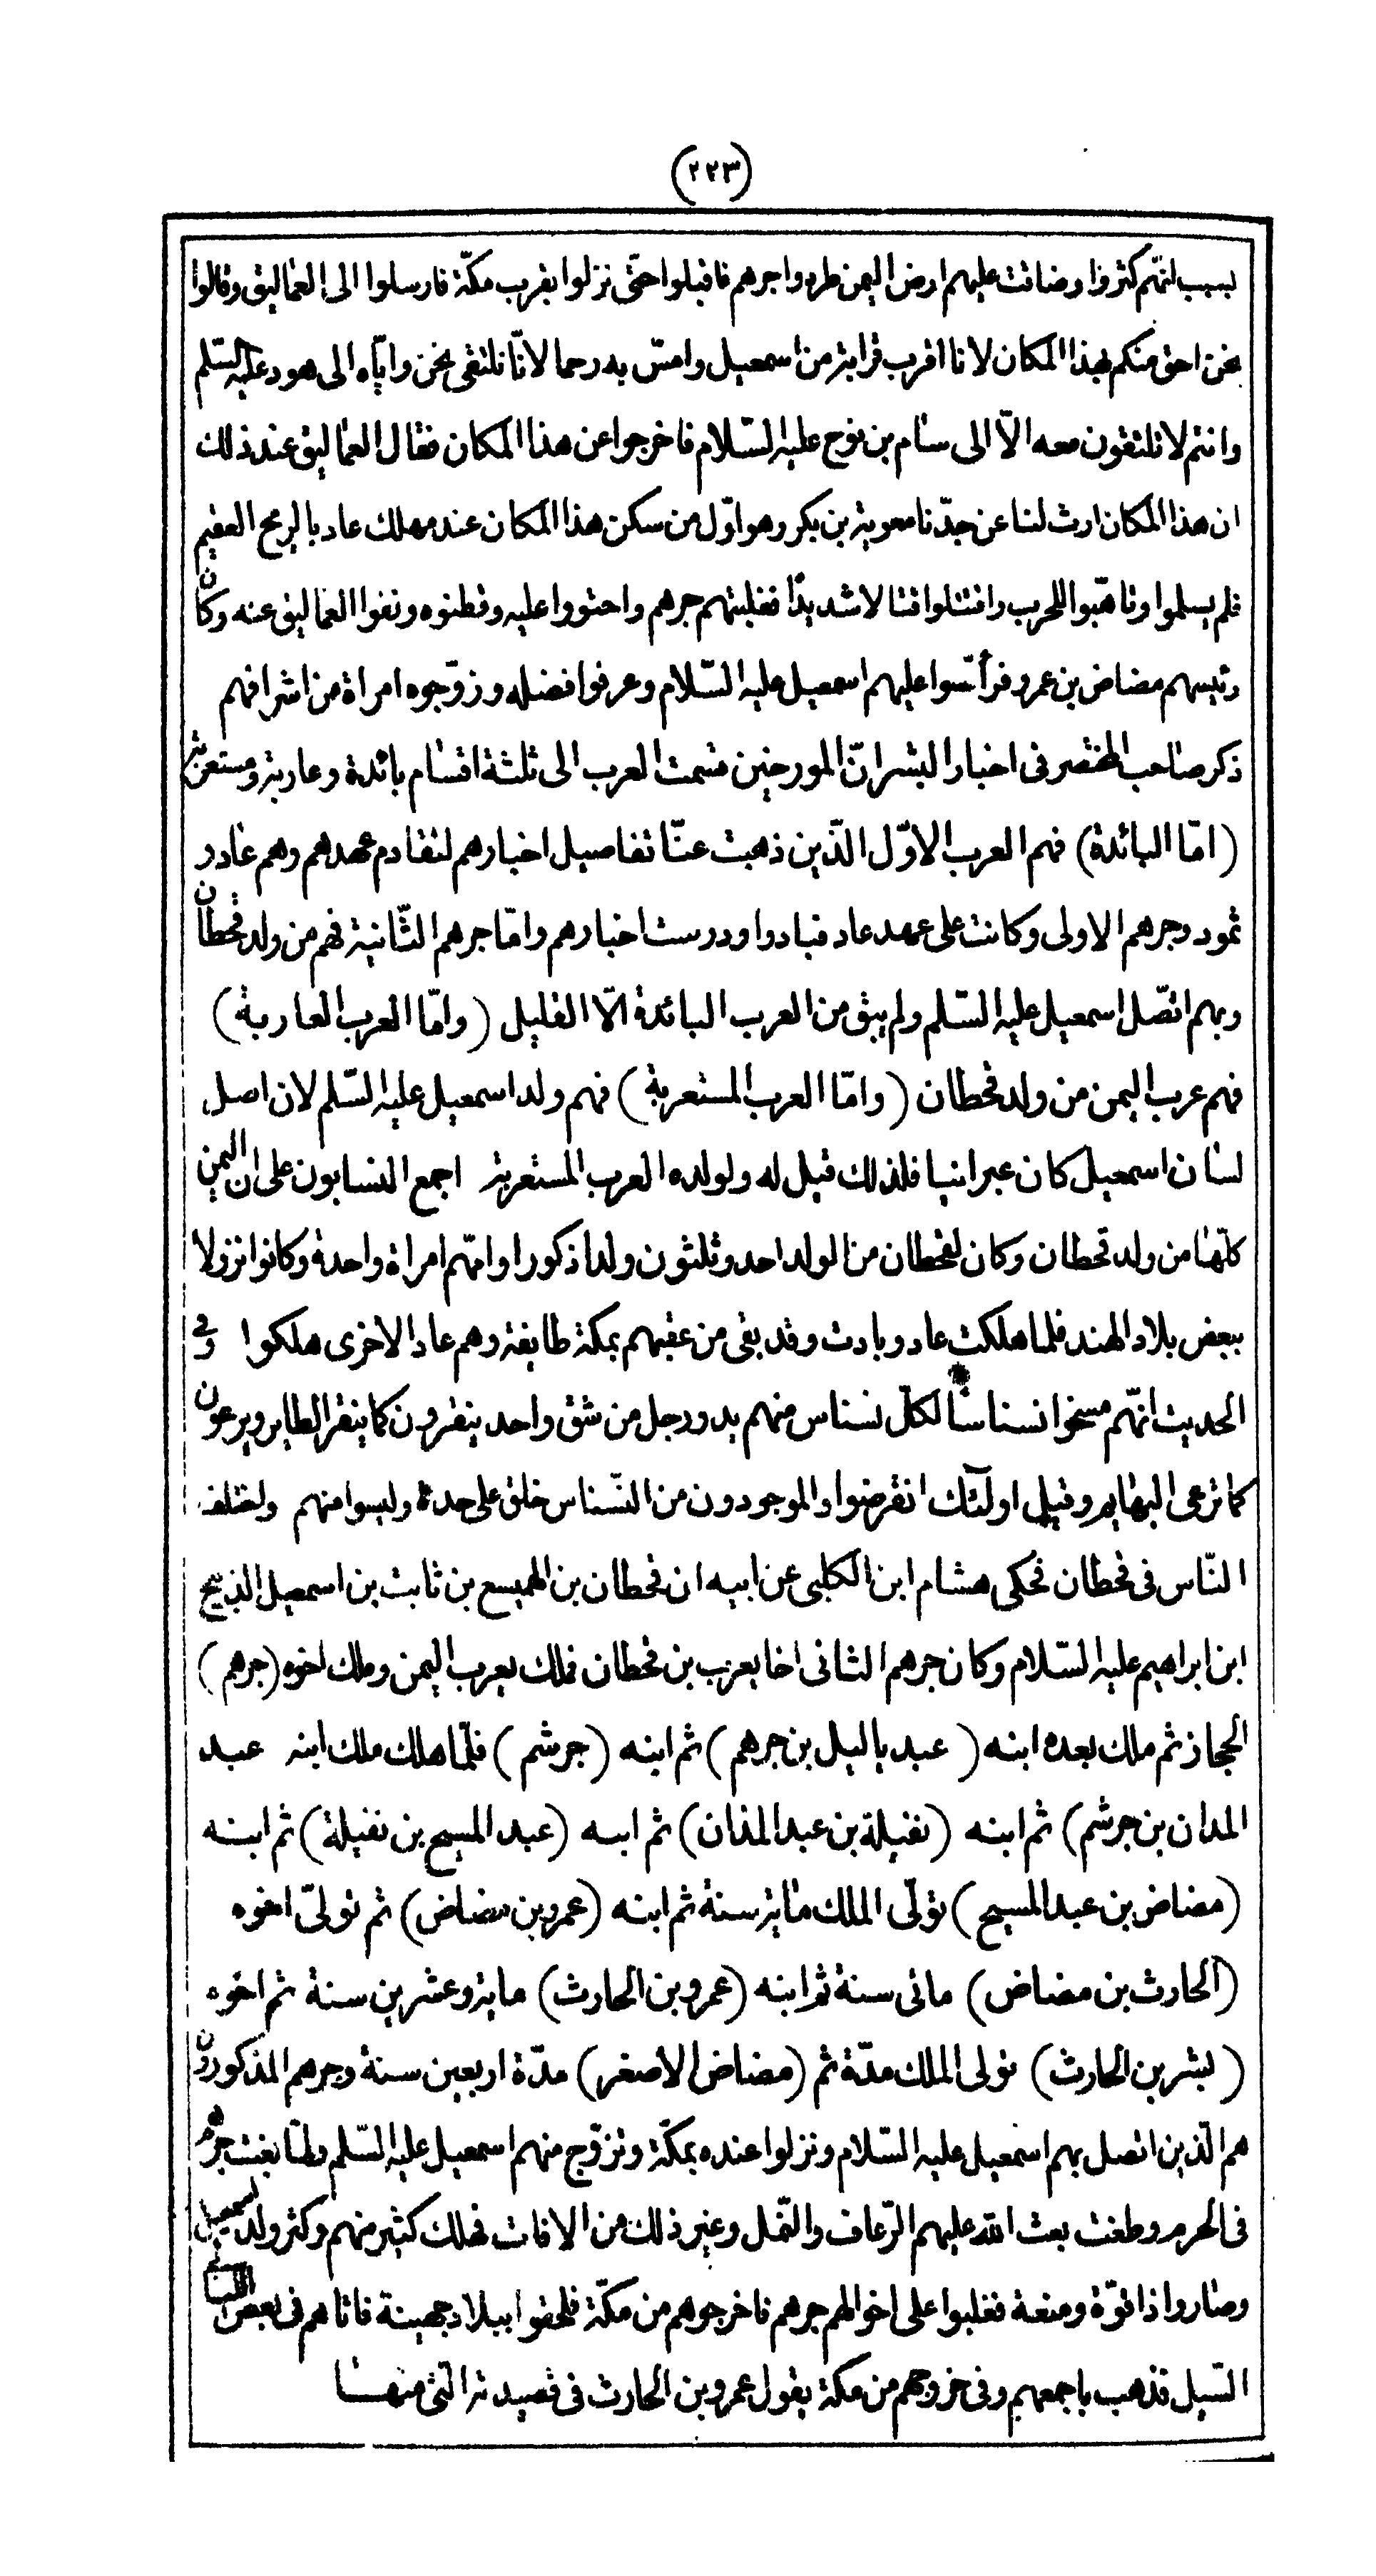 (٢٢٣)
بسبب انّهم كثروا وضاقت عليهم ارض اليمن طردوا جرهم فاقبلوا حتّى نزلوا بقرب مكّة فارسلوا الى العماليق وقالوا
نحن احق منكم بهذا المكان لانا اقرب قرابة من اسمعيل وامسّ به رحما لانّا نلتقى نحن وايّاه الى هود عليه السّلم
وانتم لا تلتقون معه الّا الى سام بن نوح عليه السّلام فاخرجوا عن هذا المكان فقال العماليق عند ذلك
ان هذا المكان ارث لنا عن جدّنا معوية بن بكر وهو اوّل من سكن هذا المكان عند مهلك عاد بالريح العقيم
فلم يسلموا وتاهبّوا للحرب واقتتلوا قتالا شديدًا فغلبتهم جرهم واحتووا عليه وقطنوه ونفوا العماليق عنه وكان
رئيسهم مضاض بن عمرو فرأسّوا عليهم اسمعيل عليه السّلام وعرفوا فضله وزوّجوه امراة من اشرافهم
ذكر صاحب المختصر فى اخبار البشر انّ المورخين قسمت العرب الى ثلثة اقسام بائدة وعاربة ومستعربة
(امّا البائدة) فهم العرب الاوّل الّذين ذهبت عنّا تفاصيل اخبارهم لتقادم عهدهم وهم عاد و
ثمود وجرهم الاولى وكانت على عهد عاد فبادوا ودرست اخبارهم وامّا جرهم الثّانية فهم من ولد قحطان
وبهم اتصّل اسمعيل عليه السّلم ولم يبق من العرب البائدة الّا القليل (وامّا العرب العاربة)
فهم عرب اليمن من ولد قحطان (وامّا العرب المستعربة) فهم ولد اسمعيل عليه السّلم لان اصل
لسان اسمعيل كان عبرانيا فلذلك قيل له ولولده العرب المستعربة اجمع النسابون على ان اليمن
كلّها من ولد قحطان وكان لقحطان من الولد احد وثلثون ولدا ذكورا وامّهم امراة واحدة وكانوا نزولا
ببعض بلاد الهند فلما هلكت عاد وبادت وقد بقى من عقبهم بمكة طايفة وهم عاد الاخرى هلكوا وفى
الحديث انّهم مسخوا نسناسا لكلّ نسناس منهم يد ورجل من شق واحد ينقرون كما ينقر الطاير ويرعون
كما ترعى البهايم وقيل اولئك انقرضوا والموجودون من النّسناس خلق على حدة وليسوا منهم واختلف
النّاس فى قحطان فحكى هشام ابن الكلبى عن ابيه ان قحطان بن الهميسع بن ثابت بن اسمعيل الذبيح
ابن ابراهيم عليه السّلام وكان جرهم الثانى اخا يعرب بن قحطان فملك يعرب اليمن وملك اخوه (جرهم)
الحجاز ثم ملك بعده ابنه (عبد ياليل بن جرهم) ثم ابنه (جرشم) فلمّا هلك ملك ابنه عبد
المدان بن جرشم) ثم ابنه (نفيلة بن عبد المدان) ثم ابنه (عبد المسيح بن نفيلة) ثم ابنه
(مضاض بن عبد المسيح) تولّى الملك ماية سنة ثم ابنه (عمرو بن مضاض) ثم تولّى اخوه
(الحارث بن مضاض) ماتى سنة ثم ابنه (عمرو بن الحارث) ماية وعشرين سنة ثم اخوه
(بشر بن الحارث) تولى الملك مدّة ثم (مضاض الأصغر) مدّة اربعين سنة وجرهم المذكورون
هم الّذين اتصل بهم اسمعيل عليه السّلام ونزلوا عنده بمكّة وتزوّج منهم اسمعيل عليه السّلم ولمّا بغت جرهم
فى الحرم وطغت بعث اللّه عليهم الرّعاف والنّمل وغير ذلك من الافات فهلك كثير منهم وكثر ولد اسمعيل
وصاروا ذا قوّة ومنعة فغلبوا على اخوالهم جرهم فاخرجوهم من مكّة فلحقوا ببلاد جهينة فاتاهم فى بعض
السّيل فذهب باجمعهم وفى خروجهم من مكة يقول عمرو بن الحارث فى قصيدته الّتى منها